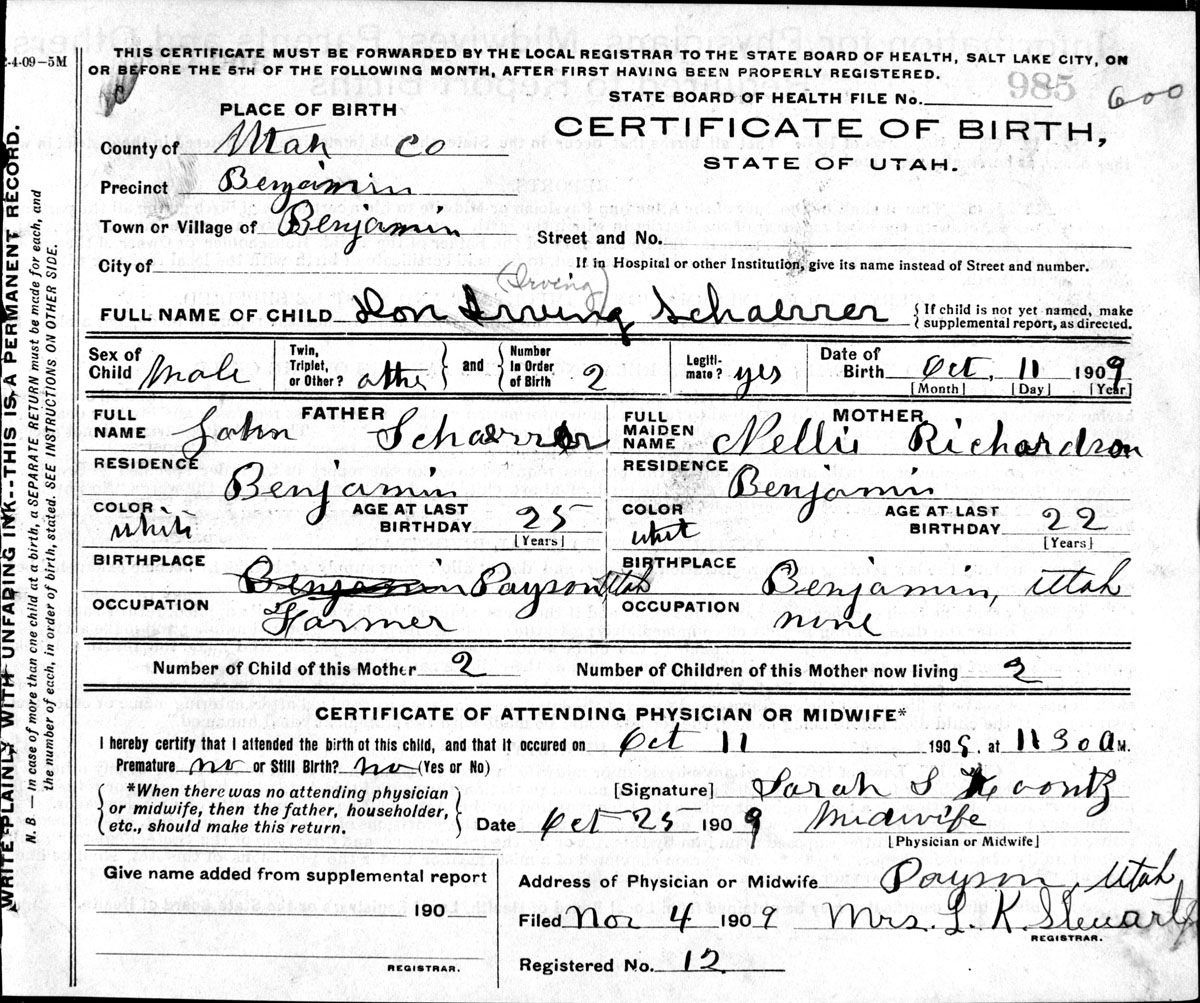 2-4-09-5M
THIS CERTIFICATE MUST BE FORWARDED BY THE LOCAL REGISTRAR TO THE STATE BOARD OF HEALTH, SALT LAKE CITY, ON
OR BEFORE THE 5TH OF THE FOLLOWING MONTH, AFTER FIRST HAVING BEEN PROPERLY REGISTERED.
STATE BOARD OF HEALTH FILE No. 985 600
PLACE OF BIRTH
CERTIFICATE OF BIRTH,
STATE OF UTAH.
County of Utah Co
Precinct Benjamin
Town or Village of Benjamin
Street and No.
City of
If in Hospital or other Institution, give its name instead of Street and number.
(Irving)
FULL NAME OF CHILD Don Irving Schaerrer { If child is not yet named, make
supplemental report, as directed.
Sex of Child Male Twin, Triplet, or Other? and Number In Order of Birth 2 Legitimate? yes Date of Birth Oct. 11 1909
[Month] [Day] [Year]
FATHER
FULL NAME John Schaerrer
RESIDENCE Benjamin
COLOR white AGE AT LAST BIRTHDAY 25
[Years]
BIRTHPLACE Benjamin Payson Utah
OCCUPATION Farmer
MOTHER
FULL MAIDEN NAME Nellie Richardson
RESIDENCE Benjamin
COLOR whit AGE AT LAST BIRTHDAY 22
[Years]
BIRTHPLACE Benjamin, Utah
OCCUPATION none
Number of Child of this Mother 2 Number of Children of this Mother now living 2
CERTIFICATE OF ATTENDING PHYSICIAN OR MIDWIFE*
I hereby certify that I attended the birth of this child, and that it occured on Oct 11 1909, at 11 30 a M.
Premature no or Still Birth? no (Yes or No)
*When there was no attending physician
or midwife, then the father, householder,
etc., should make this return.
[Signature] Sarah S Koontz
Date Oct 25 1909 Midwife
[Physician or Midwife]
Give name added from supplemental report
190
REGISTRAR.
Address of Physician or Midwife Payson, Utah
Filed Nov 4 1909 Mrs. L. K. Stewart
REGISTRAR.
Registered No. 12
WRITE PLAINLY WITH UNFADING INK--THIS IS A PERMANENT RECORD.
N. B. — in case of more than one child at a birth, a SEPARATE RETURN must be made for each, and
the number of each, in order of birth, stated. SEE INSTRUCTIONS ON OTHER SIDE.